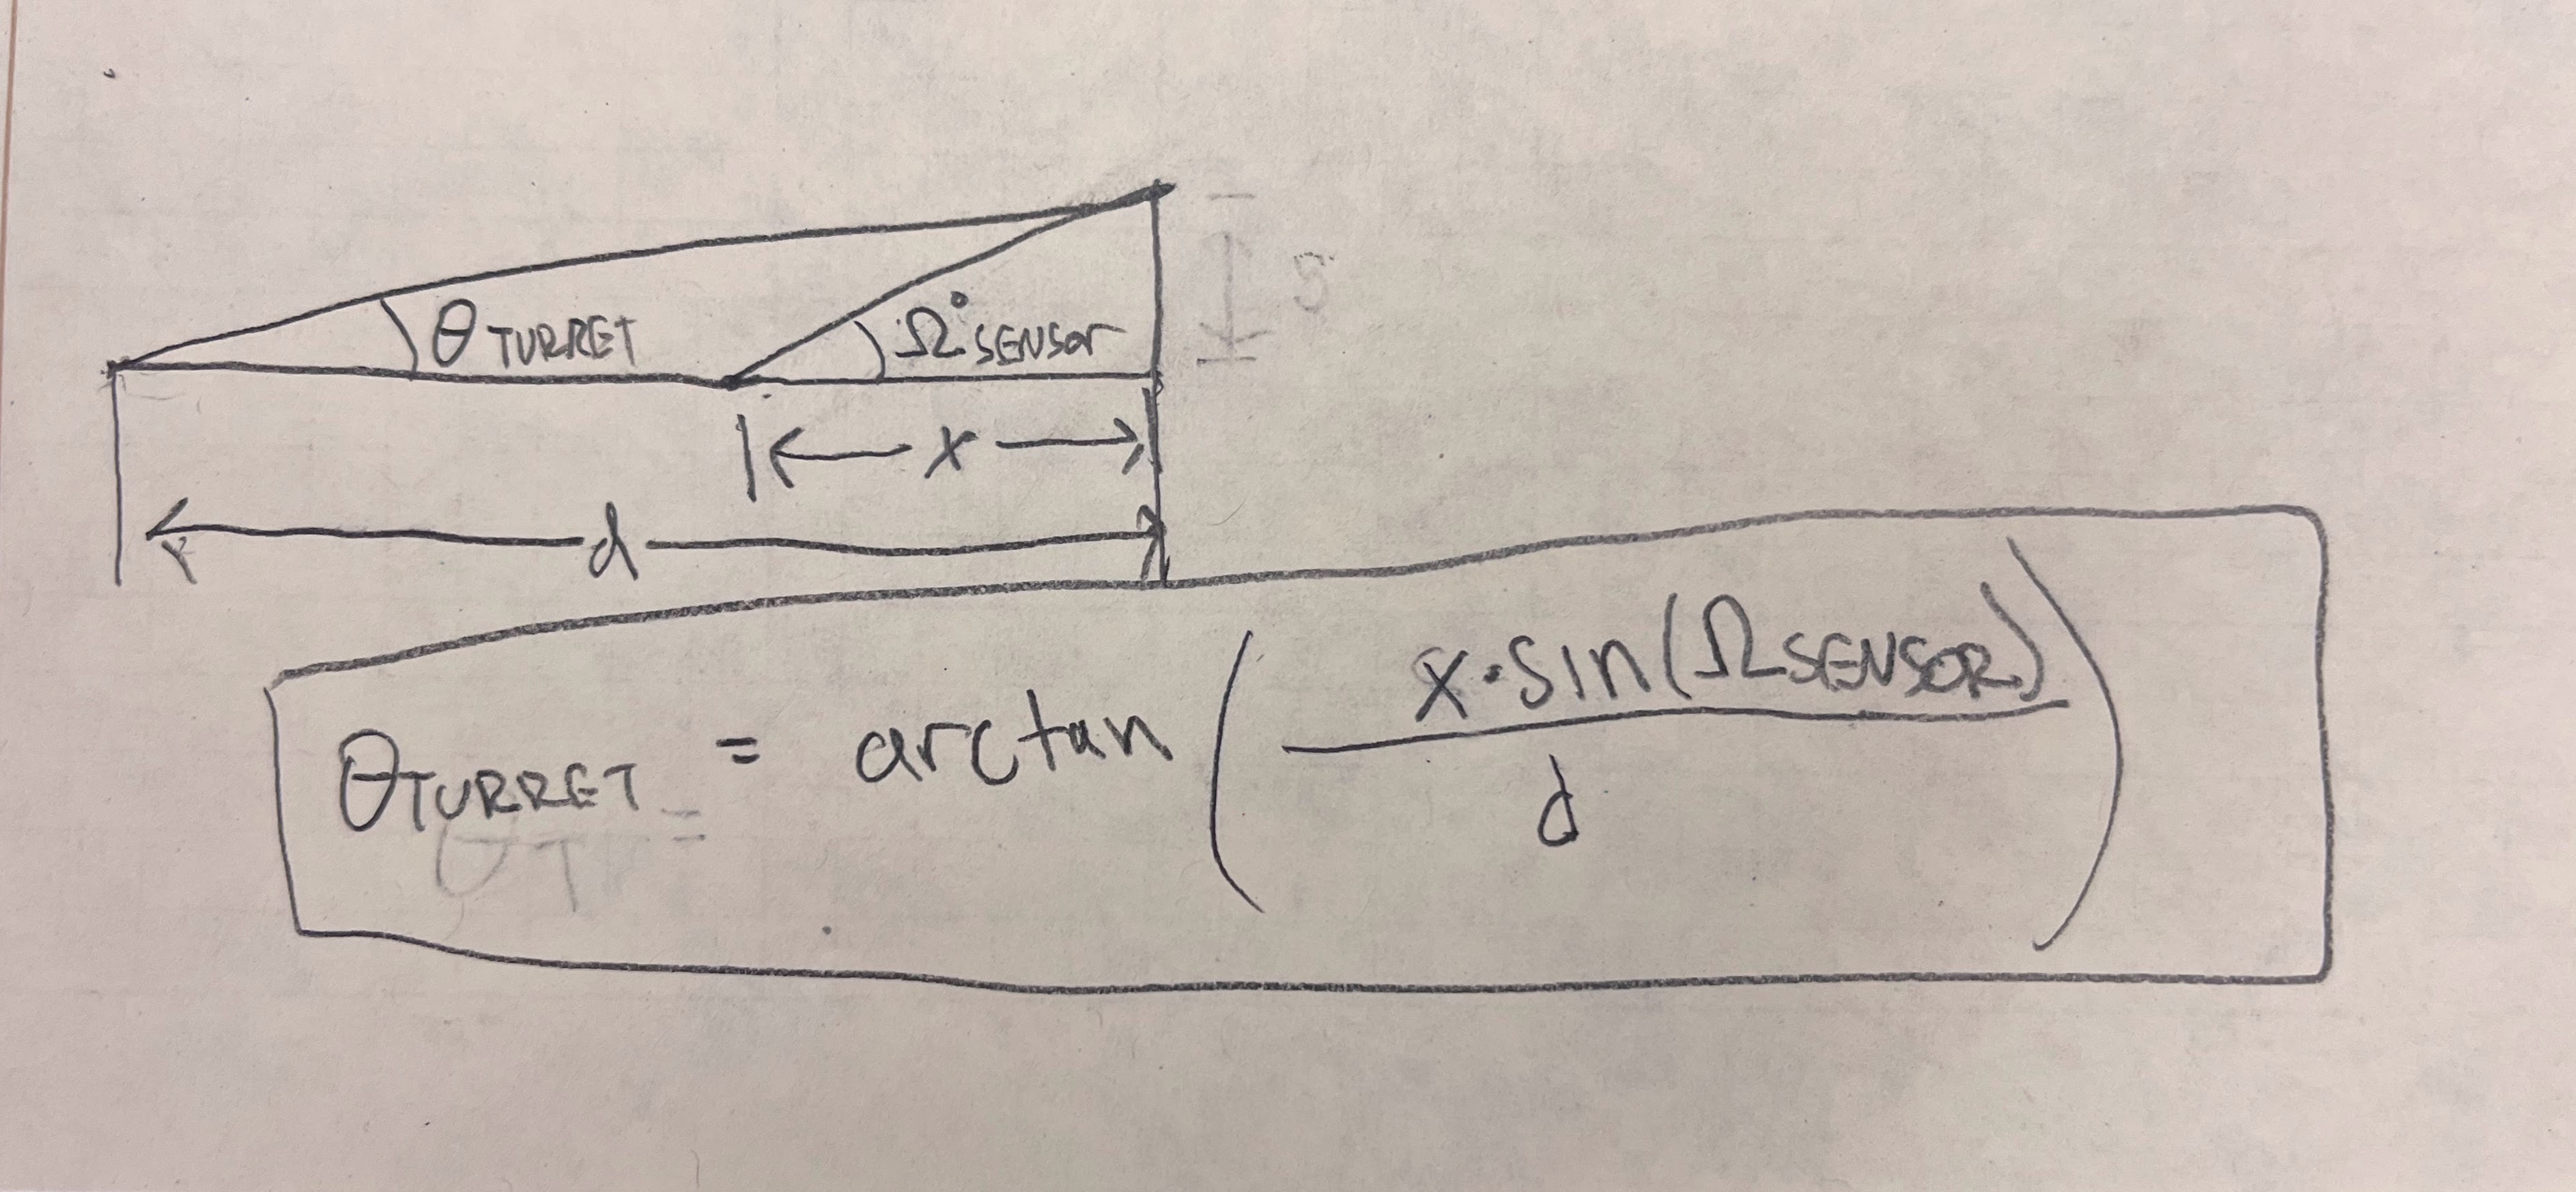 θTURRET Ω°SENSOR
x
d
θTURRET = arctan ( x·sin(ΩSENSOR) / d )
θT =